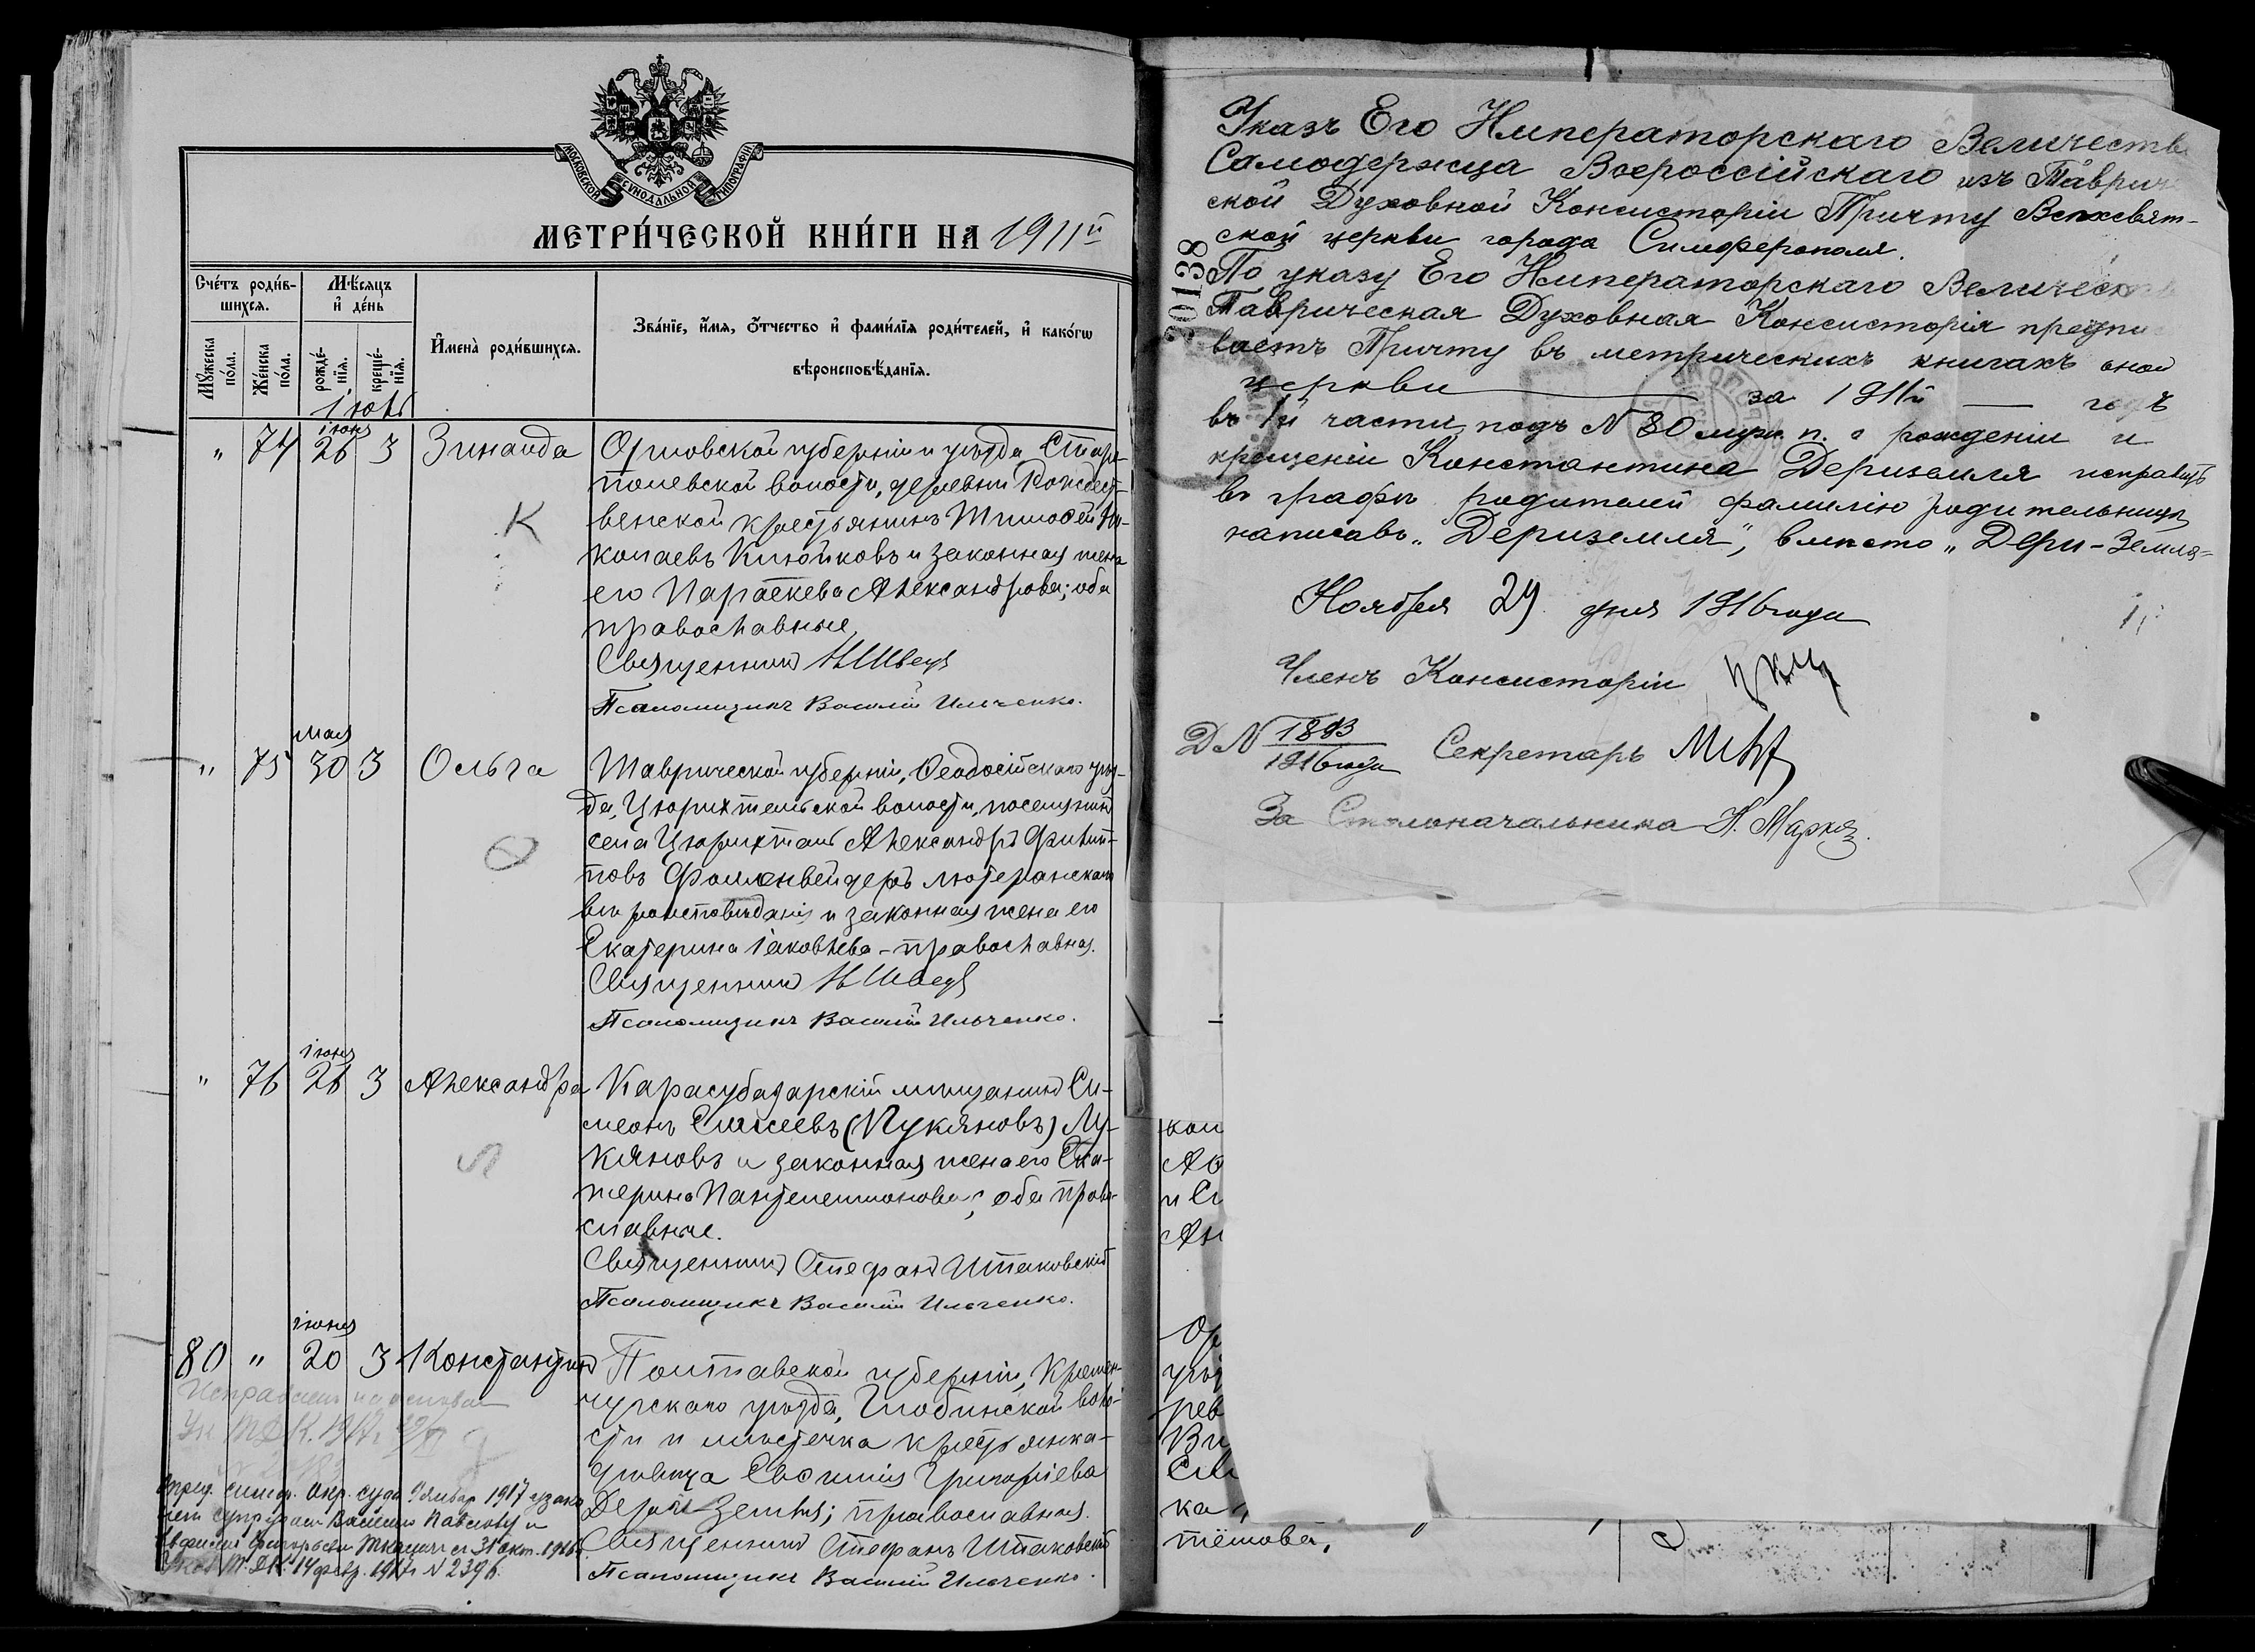 МОСКОВСКОЙ СѴНОДАЛЬНОЙ ТИПОГРАФІИ
МЕТРИ́ЧЕСКОЙ КНИ́ГИ НА 1911й
Сче́тъ роди́в-
шихся.
Мѣ́сяцъ
и҆ де́нь
Мꙋ́жеска
по́ла.
Же́нска
по́ла.
рожде́-
нїя.
креще́-
нїя.
И҆мена̀ роди́вшихся.
Зва́нїе, и҆́мя, ѻ҆́тчество и҆ фами́лїя роди́телей, и҆ како́гѡ
вѣроисповѣ́данїя.
іюль
" 74 іюня 26 3 Зинаида
Орловской губерніи и уѣзда Старо-
полевской волости, деревни Рождест-
венской крестьянинъ Тимофей Ни-
колаевъ Клюйковъ и законная жена
его Параскева Александрова; оба
православные,
Священникъ Н Швецъ
Псаломщикъ Василій Ильченко.
К
" 75 мая 30 3 Ольга
Таврической губерніи, Ѳеодосійскаго уѣз-
да, Цюрихтальской волости, поселянинъ
села Цюрихталь Александръ Филип-
повъ лютеранскаго
вѣроисповѣданія и законная жена его
Екатерина Іаковлева - православная.
Священникъ Н Швецъ
Псаломщикъ Василій Ильченко.
" 76 іюня 26 3 Александра
Карасубазарскій мѣщанинъ Си-
меонъ Елисеевъ (Лукяновъ) Лу-
кяновъ и законная жена его Ека-
терина Пантелеимонова; оба право-
славные.
Священникъ Стефанъ Штаковскій
Псаломщикъ Василій Ильченко.
80 " іюня 20 3 Константинъ
Полтавской губерніи, Кремен-
чугскаго уѣзда, Глобинской воло-
сти и мѣстечка крестьянка-
дѣвица Евфимія Григоріева
Дери-Земля; православная.
Священникъ Стефанъ Штаковскій
Псаломщикъ Василій Ильченко.
Исправлено на основан
Ук. Т.Д.К. 1917г
Опред. Симф. Окр. суда 9 январ. 1917 узако
нен супругами Василіем Павловым и
Евфиміей Григорьевой Ткачами с 31 окт. 1916
Указ Т. Д.К. 14 февр. 1917г N 2396.
Указъ Его Императорскаго Величеств
Самодержца Всероссійскаго изъ Тавриче
ской Духовной Консисторіи Причту Всѣхсвят-
ской церкви города Симферополя.
20138
По указу Его Императорскаго Величества
Таврическая Духовная Консисторія предпис
ваетъ Причту въ метрическихъ книгахъ оной
церкви за 1911й годъ
въ 1й части, подъ N 80 муж. п. о рожденіи и
крещеніи Константина Дериземля исправить
въ графѣ родителей фамилію родительницы
написавъ „Дериземля", вмѣсто „Дери-Земля"
Ноября 29 дня 1916 года
Членъ Консисторіи
Д N 1893
1916 года
Секретарь
За Столоначальника Н.
кол
Ав
и Ст
Ан
Ор
уѣз
рев
Ви
ка,
тёмова,